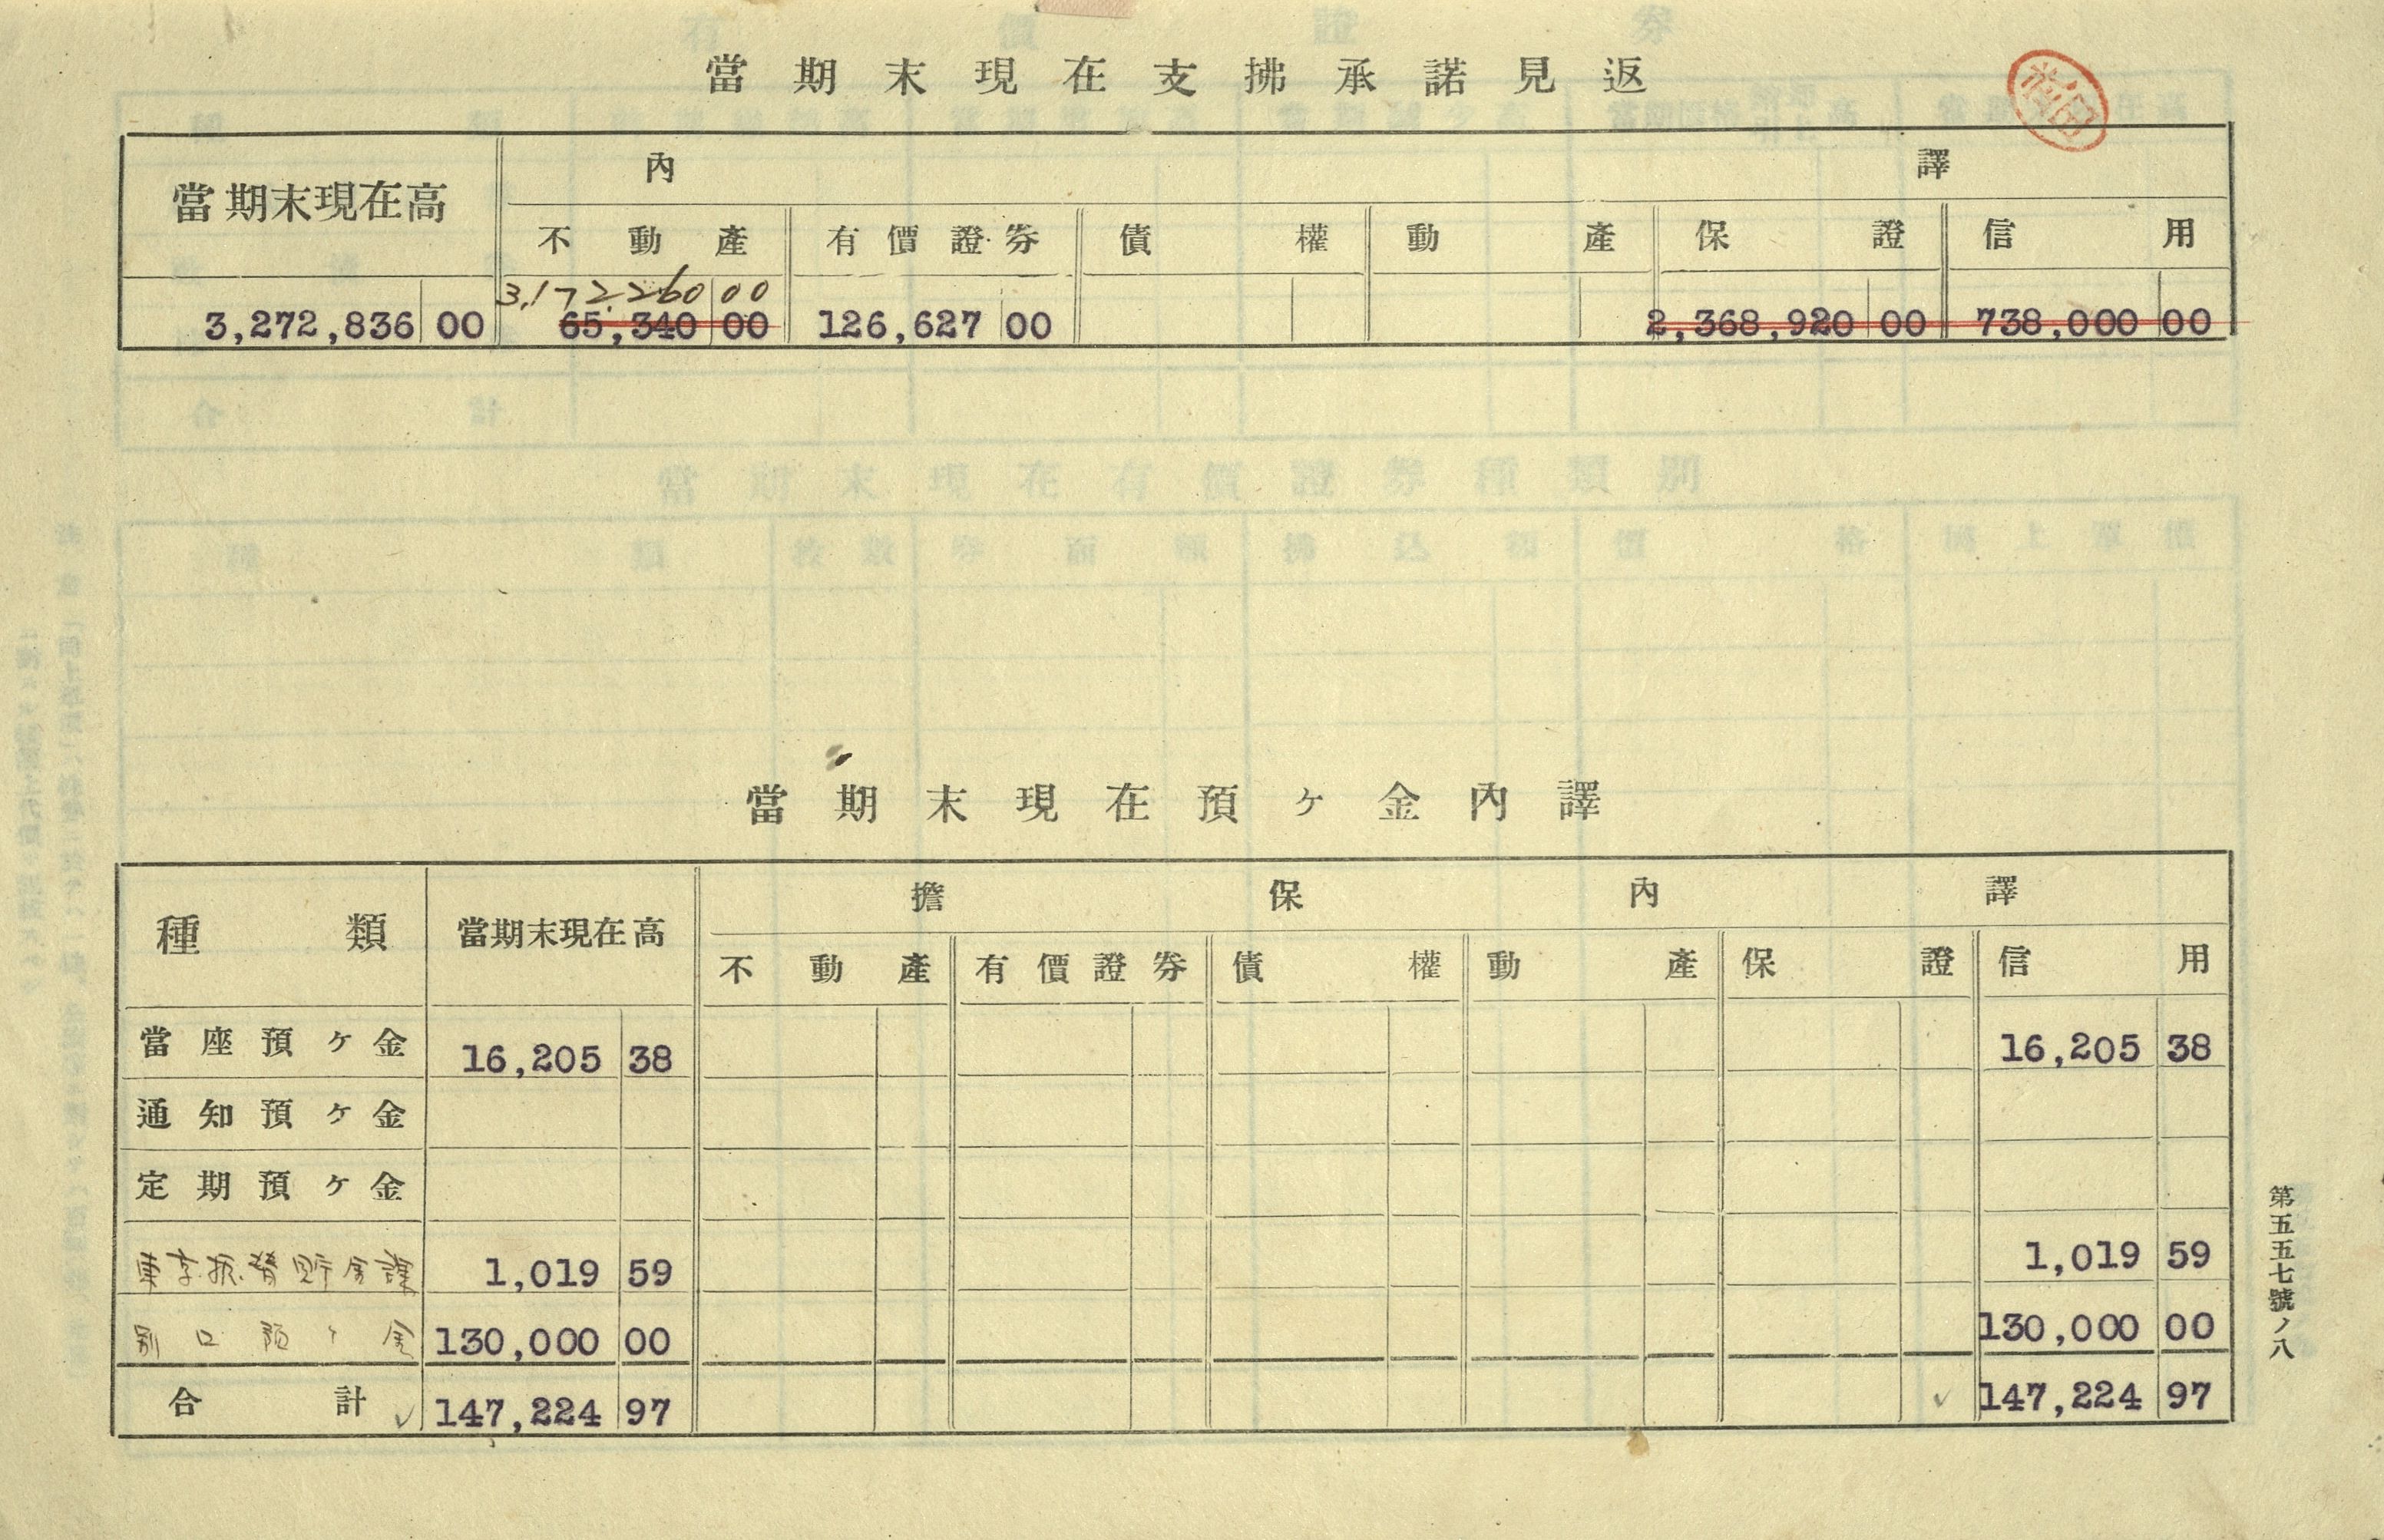 當期末現在支拂承諾見返
當期末現在高 內譯
不動產 有價證券 債權 動產 保證 信用
3,172,260 00
3,272,836 00 65,340 00 126,627 00 2,368,920 00 738,000 00
當期末現在預ヶ金內譯
種類 當期末現在高 擔保內譯
不動產 有價證券 債權 動產 保證 信用
當座預ヶ金 16,205 38 16,205 38
通知預ヶ金
定期預ヶ金
東京振替貯金課 1,019 59 1,019 59
別口預ヶ金 130,000 00 130,000 00
合計 ✓ 147,224 97 ✓ 147,224 97
第五五七號ノ八